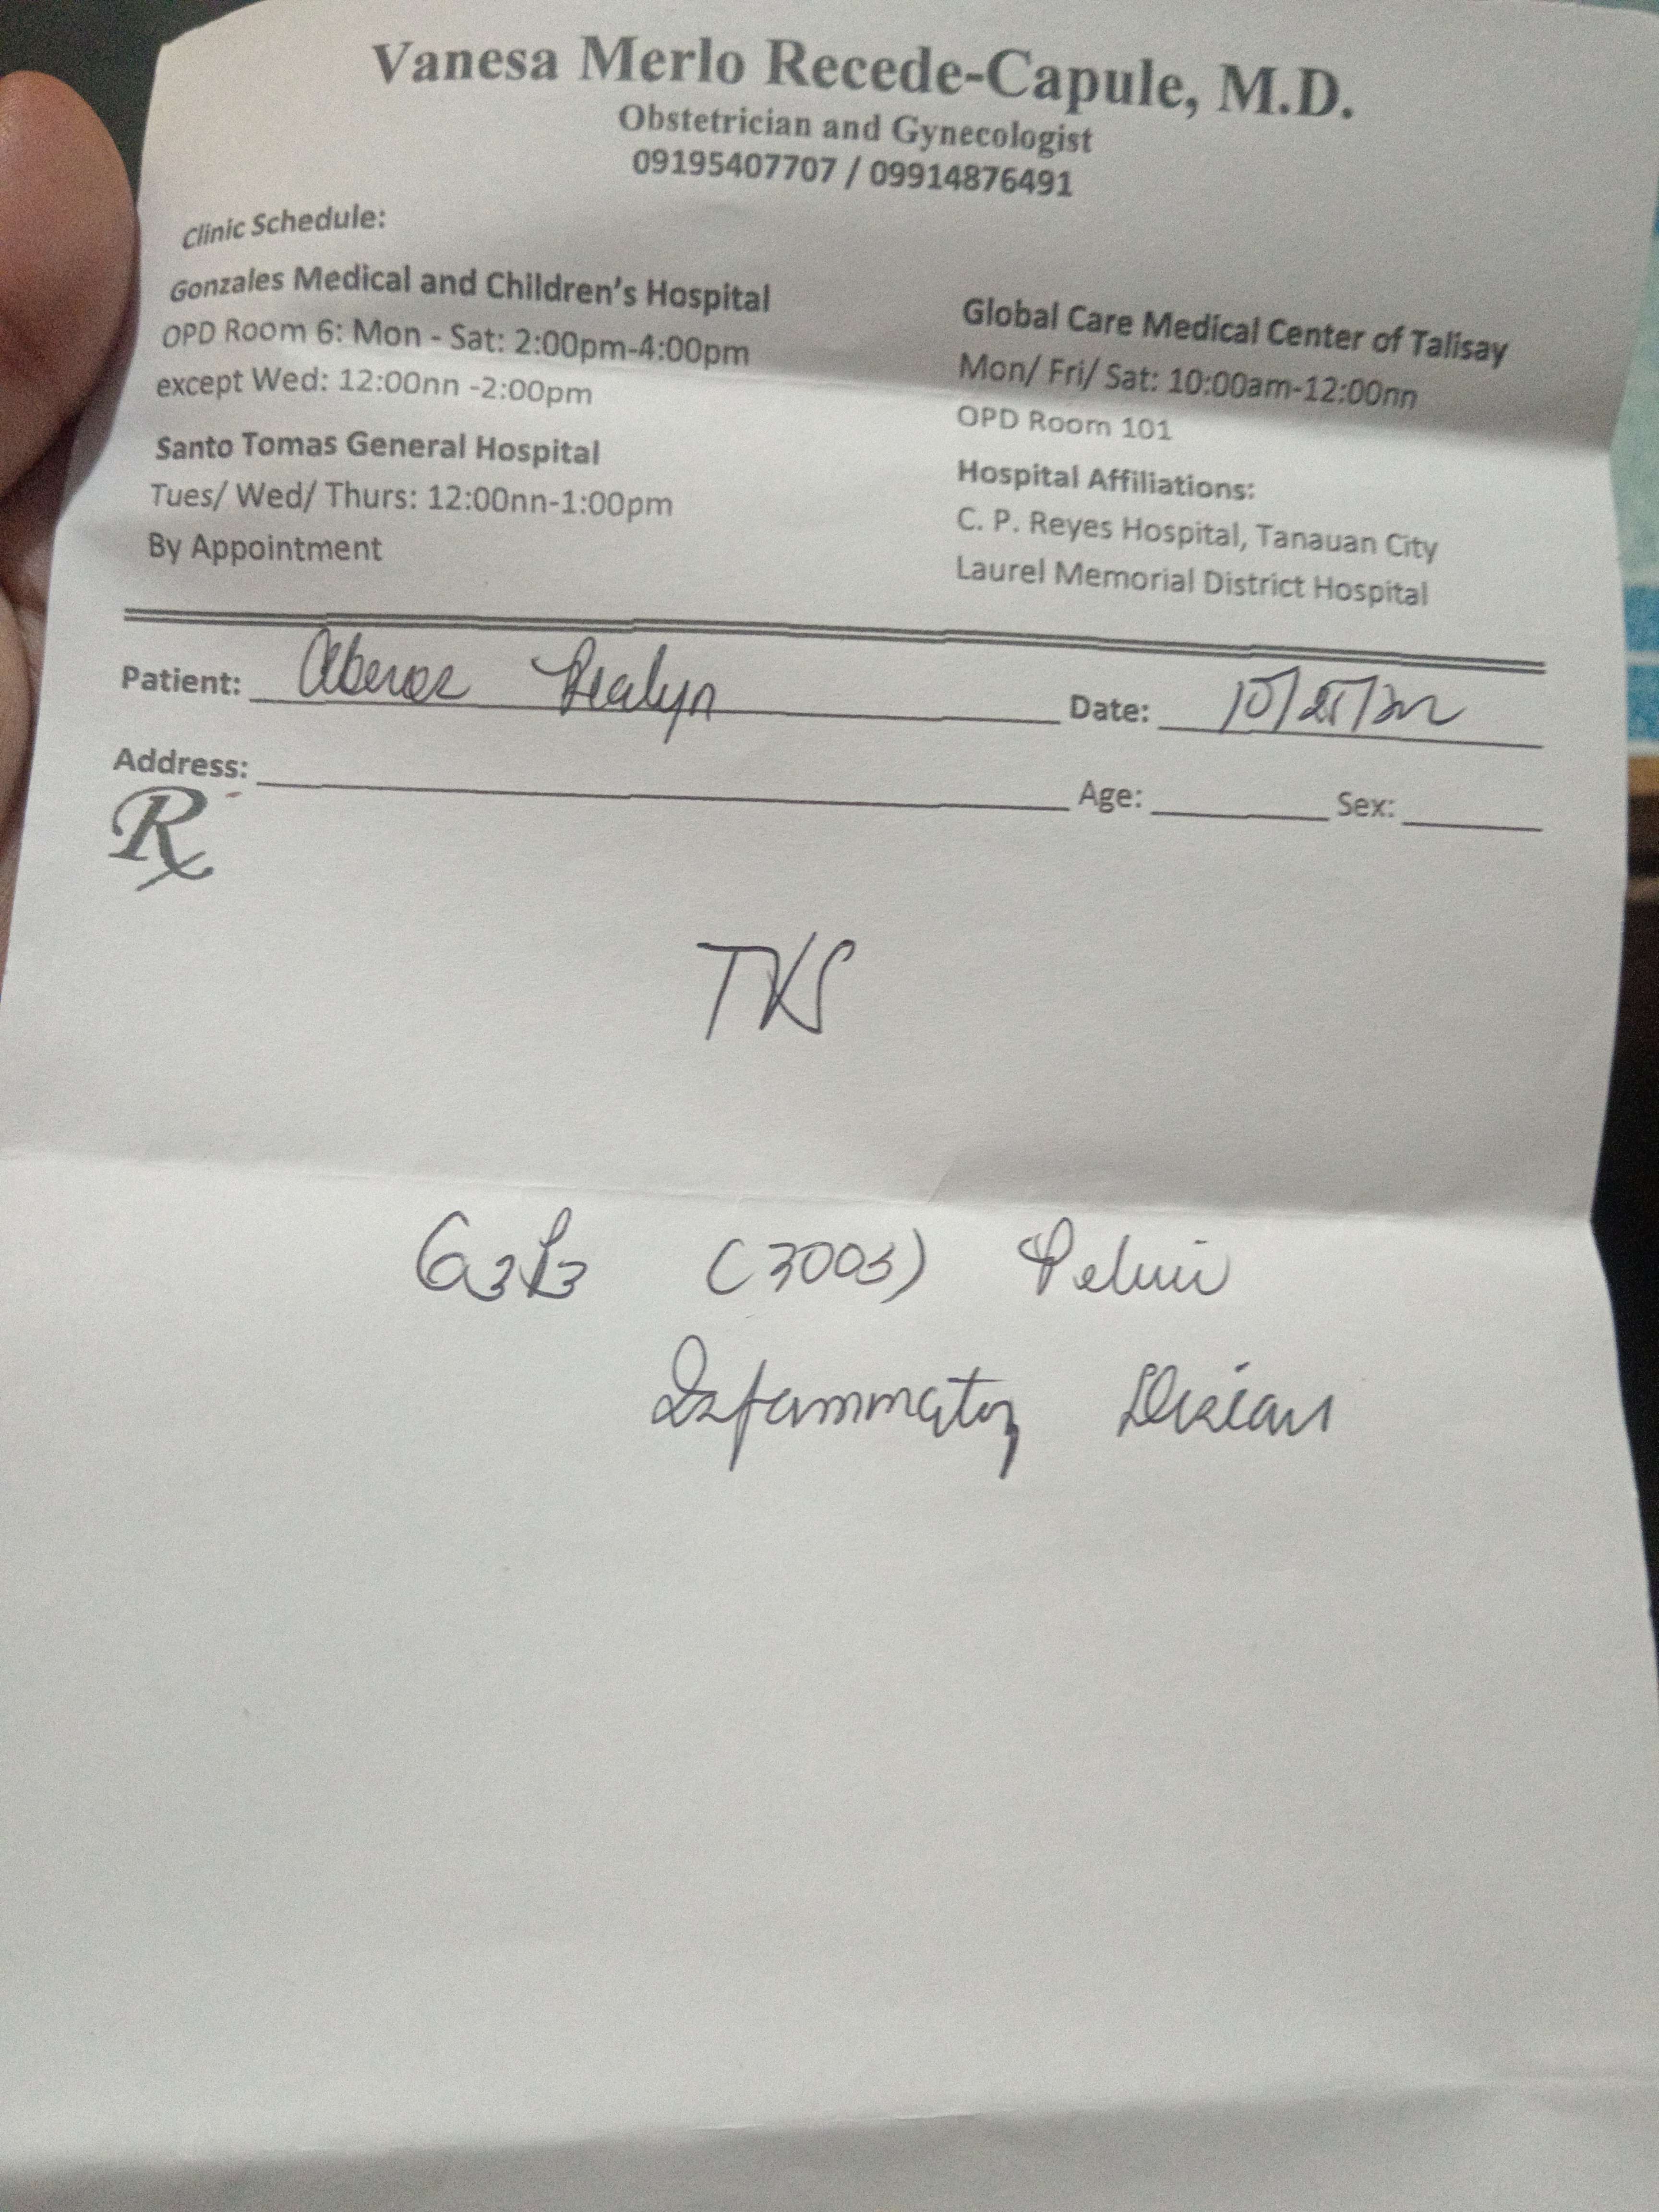 Vanesa Merlo Recede-Capule, M.D.
Obstetrician and Gynecologist
09195407707 / 09914876491
Clinic Schedule:
Gonzales Medical and Children's Hospital
OPD Room 6: Mon - Sat: 2:00pm-4:00pm
except Wed: 12:00nn -2:00pm
Santo Tomas General Hospital
Tues/ Wed/ Thurs: 12:00nn-1:00pm
By Appointment
Global Care Medical Center of Talisay
Mon/ Fri/ Sat: 10:00am-12:00nn
OPD Room 101
Hospital Affiliations:
C. P. Reyes Hospital, Tanauan City
Laurel Memorial District Hospital
Patient: Realyn Date:
Address: Age: Sex:
Rx
G3P3 (3003) Pelvic
Inflammatory Disease